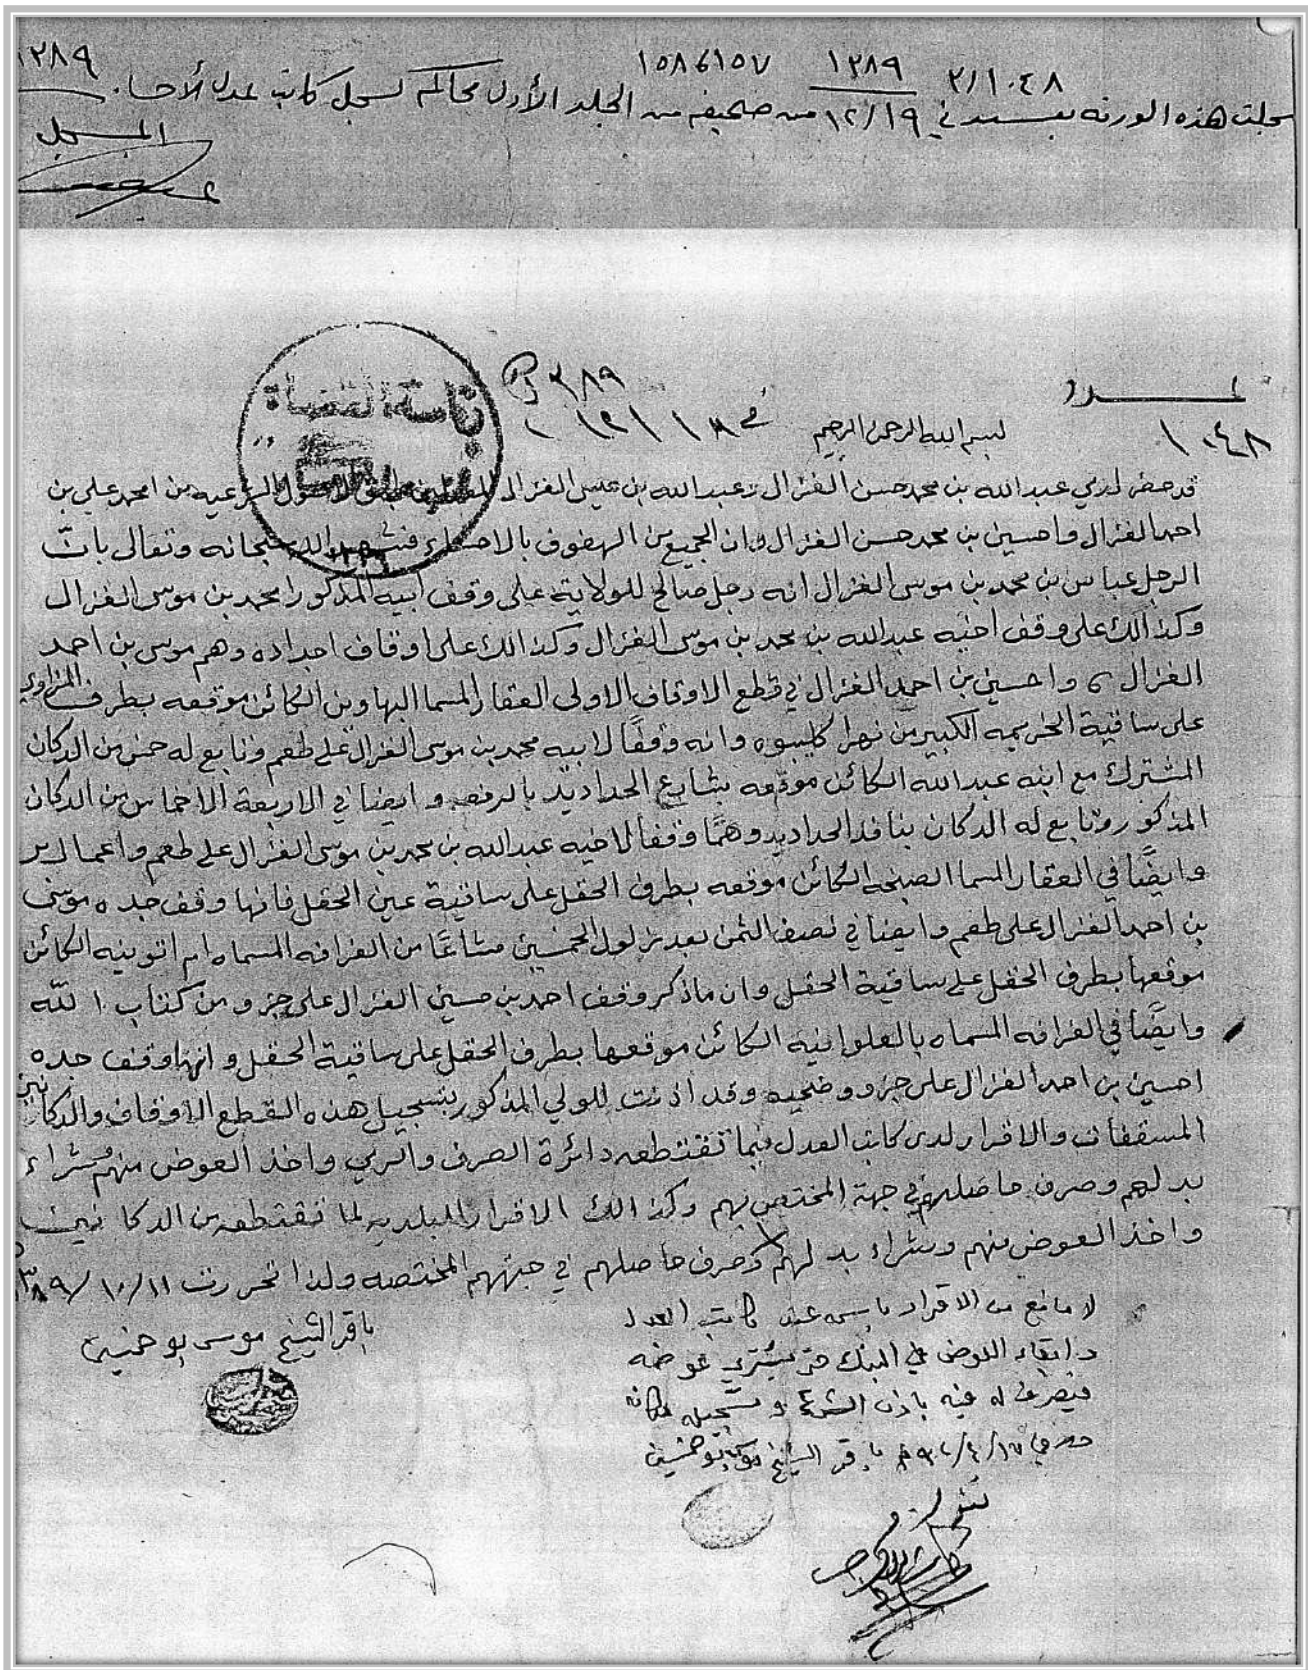 ١٥٨٦١٥٧ ١٣٨٩ ٢/١٠٤٨
سجلت هذه الورقة في ١٢/١٩ من صحيفه من الجلد الأول محاكم لسجل كاتب عدل الأحساء ١٣٨٩
المسجل
رئاسة القضاة
عدد
٣٨٩
١٠٤٨ بسم الله الرحمن الرحيم في ١٨ / ١٢
قد حضر لدي عبدالله بن محمد حسن الغزال وعبدالله بن عيسى الغزال من امحمد علي بن
احمد الغزال واحسين بن محمد حسن الغزال وان الجميع من الهفوف بالاحساء سبحانه وتعالى بانّ
الرجل عباس بن محمد بن موسى الغزال انه رجل صالح للولاية على وقف ابيه المذكور امحمد بن موسى الغزال
وكذالك على وقف اخيه عبدالله بن محمد بن موسى الغزال وكذالك على اوقاف اجداده وهم موسى بن احمد
الغزال واحسين بن احمد الغزال في قطع الاوقاف الاولى العقار المسما البهاوين الكائن موقعه بطرف المزاوي
على ساقية الخريمه الكبير من نهر كليبوه وانه وقفًا لابيه محمد بن موسى الغزال على طعم وتابع له خمس من الدكان
المشترك مع ابنه عبدالله الكائن موقعه بشارع الحداديد بالرفعه وايضا في الاربعة الاخماس من الدكان
المذكور وتابع له الدكان بنافذ الحداديد وهمًا وقفًا لاخيه عبدالله بن محمد بن موسى الغزال على طعم واعمال بر
وايضًا في العقار المسما الصبخه الكائن موقعه بطرف الحقل على ساقية عين الحقل فانها وقف جده موسى
بن احمد الغزال على طعم وايضا في نصف الثمن بعد نزول الخمسين مشاعًا من الغرافه المسماه ام اتوينه الكائن
موقعها بطرف الحقل على ساقية الحقل وان ماذكر وقف احمد بن حسين الغزال على جزو من كتاب الله
وايضًا في الغرافه المسماه بالعلوانيه الكائن موقعها بطرف الحقل على ساقية الحقل وانها وقف جده
احسين بن احمد الغزال على جزو وضحيه وقد اذنت للولي المذكور بتسجيل هذه القطع الاوقاف والدكانين
المسقفات والاقرار لدى كاتب العدل فيما تقتطعه دائرة الصرف والري واخذ العوض منهم وشراء
بدلهم وصرف حاصلهم في جهة المختص بهم وكذالك الاقرار للبلديه لما تقتطعه من الدكانين
واخذ العوض منهم وشراء بدلهم وصرف حاصلهم في جهتهم المختصه ولذا تحررت ١١/١٠/٣٨٩
باقر الشيخ موسى بو خمسين
لا مانع من الاقرار باسمي عند كاتب العدل
وابقاء العوض في البنك حتى يشتري عوضه
فيصرف له فيه باذن الشرع وتسجيله مكانه
باقر الشيخ موسى بو خمسين